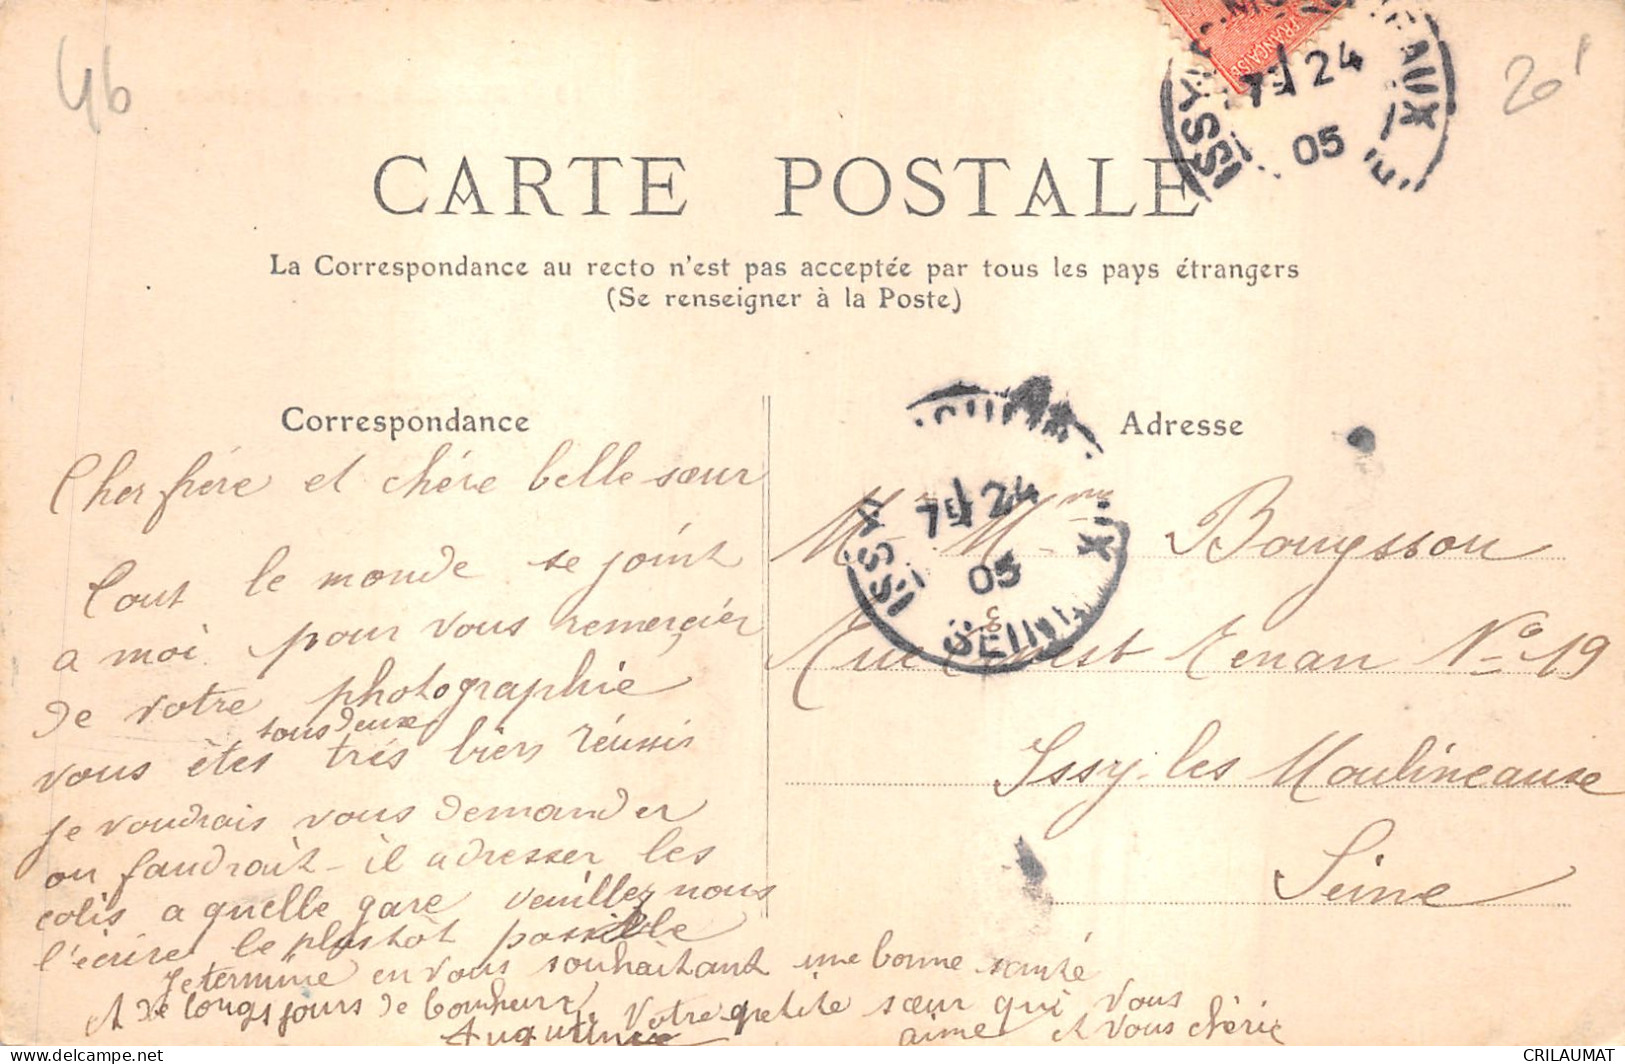 46
20'
FRANÇAISE
7E 24
05
ISSY
CARTE POSTALE
La Correspondance au recto n'est pas acceptée par tous les pays étrangers
(Se renseigner à la Poste)
Correspondance
Cher frère et chère belle sœur
Tout le monde se joint
a moi pour vous remerçier
de votre photographie
tous deux
vous êtes très biens réussis
je voudrais vous demander
ou faudrait-il adresser les
colis a quelle gare veuillez nous
l'écrire le plustôt possible
Je termine en vous souhaitant une bonne santé
et de longs jours de bonheur, Votre petite sœur qui vous
Augustine aime et vous chérie
Adresse
7E 24
05
ISSY
SEINE
Mr Mme Bouysson
Rue Ernest Renan No 19
Issy-les Moulineause
Seine
CRILAUMAT